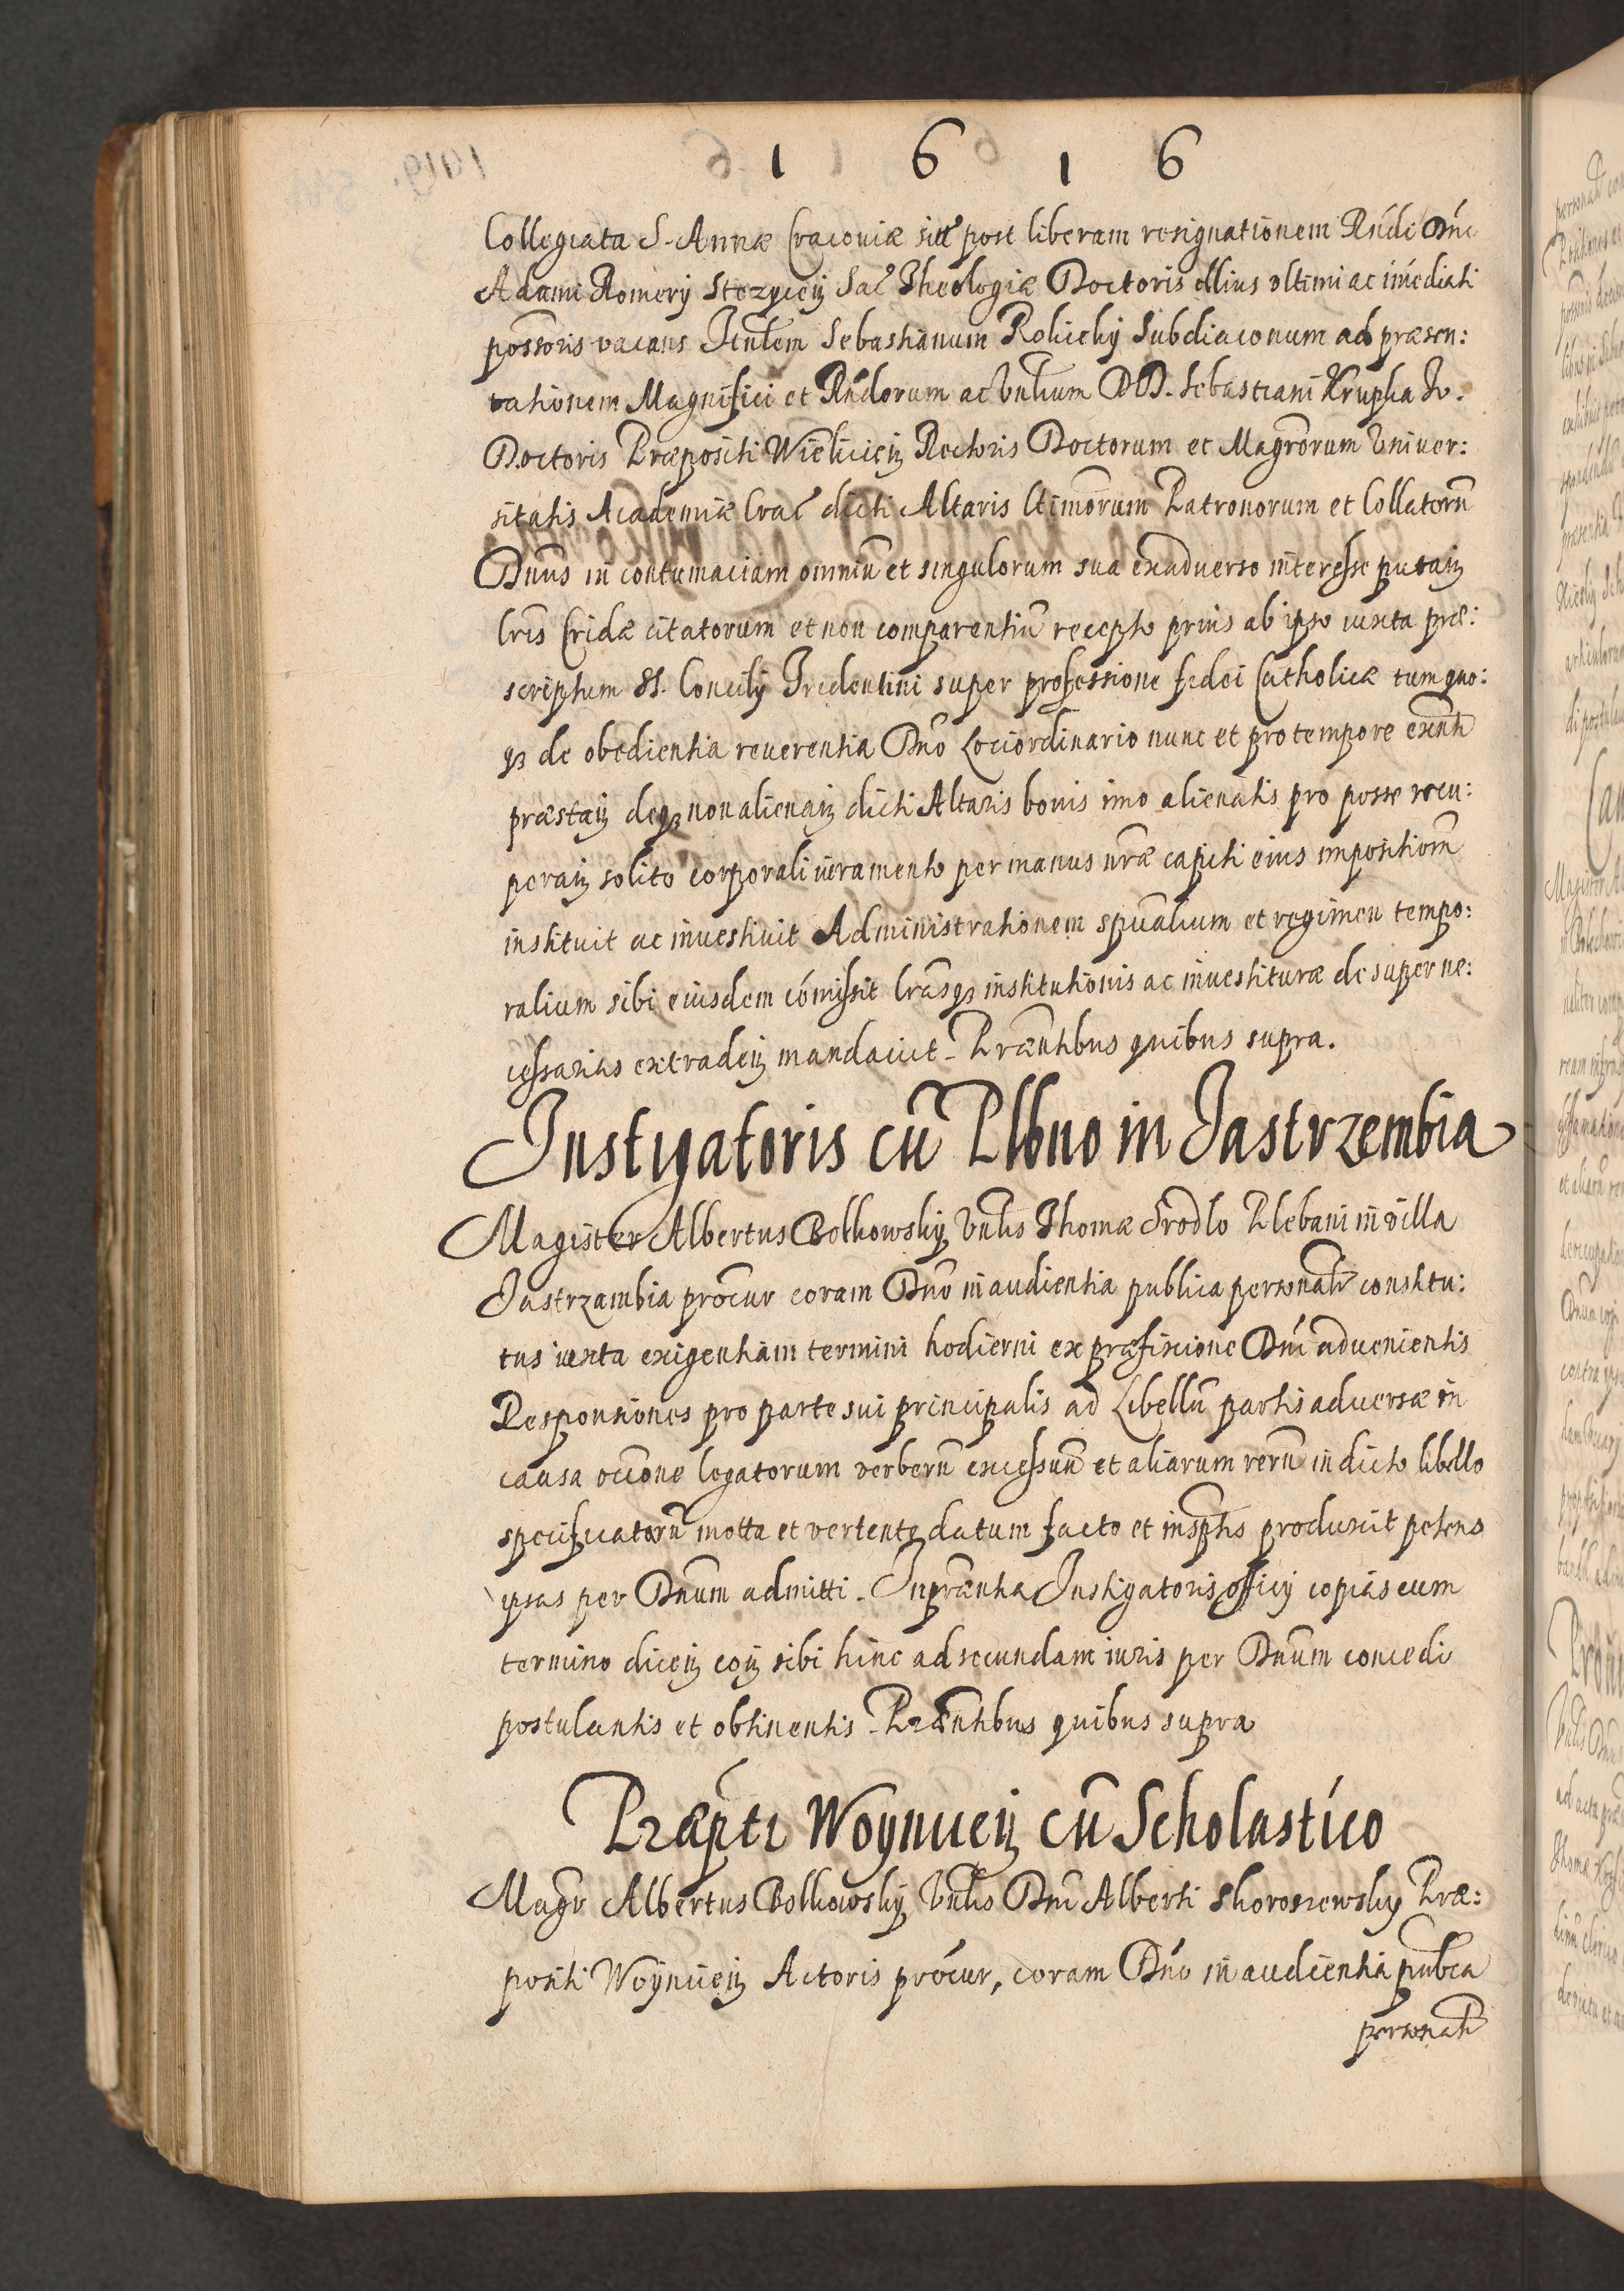 1 6 1 6
Collegiata S. Annæ Cracouiæ sitt post liberam resignationem Rndi Dni
Adami Romery Stezyceñ Sac Theologiæ Doctoris illius vltimi ac imediati
possoris vacans Itulem Sebastianum Rolicky Subdiaconum ad præsen:
tationem Magnifici et Rndorum ac Vnlium DD. Sebastiani Krupka Iv.
Doctoris Præpositi Wielicieñ Rectoris Doctorum et Magrorum Vniuer:
sitatis Academiæ Crac dicti Altaris ltimorum Patronorum et Collatorũ
Dnus in contumaciam omniũ et singulorum sua exaduerso interesse putañ
lris Cridæ citatorum et non comparentiũ recepto prius ab ipso iuxta præ:
scriptum St. Concilij Tridentini super professione fidei Catholicæ tum quo:
q3 de obedientia reuerentia Dno Lociordinario nunc et pro tempore exñti
præstañ deq3 non alienañ dicti Altaris bonis imo alienatis pro posse recu:
perañ solito corporali iuramento per manus nræ capiti eius impositiom
instituit ac inuestiuit Administrationem spualium et regimen tempo:
ralium sibi eiusdem comissit lrasq3 institutionis ac inuestituræ desuper ne:
cessarias extradeñ mandauit. Præntibus quibus supra.
Instigatoris cũ Plbno in Jastrzembia
Magister Albertus Bolkowsky Vnlis Thomæ Srodlo Plebani in villa
Jastrzambia procur coram Dno in audientia publica personatr constitu:
tus iuxta exigentiam termini hodierni ex præfixione Dni aduenientis
Responsiones pro parte sui principalis ad Libellũ partis aduersæ in
causa occone legatorum verberũ excessuũ et aliarum rerũ in dicto libello
specificatorũ motta et vertente datum facto et insptis produxit petens
ipsas per Dnum admitti. In præntia Instigatoris officij copias eum
termino diceñ coñ sibi hinc ad secundam iuris per Dnum concedi
postulantis et obtinentis. Præntibus quibus supra
Præpti Woynicieñ cũ Scholastico
Magr Albertus Bolkowsky Vnlis Dni Alberti Skoroszewsky Præ:
positi Woynicieñ Actoris procur, coram Dno in audientia pubca
personatr